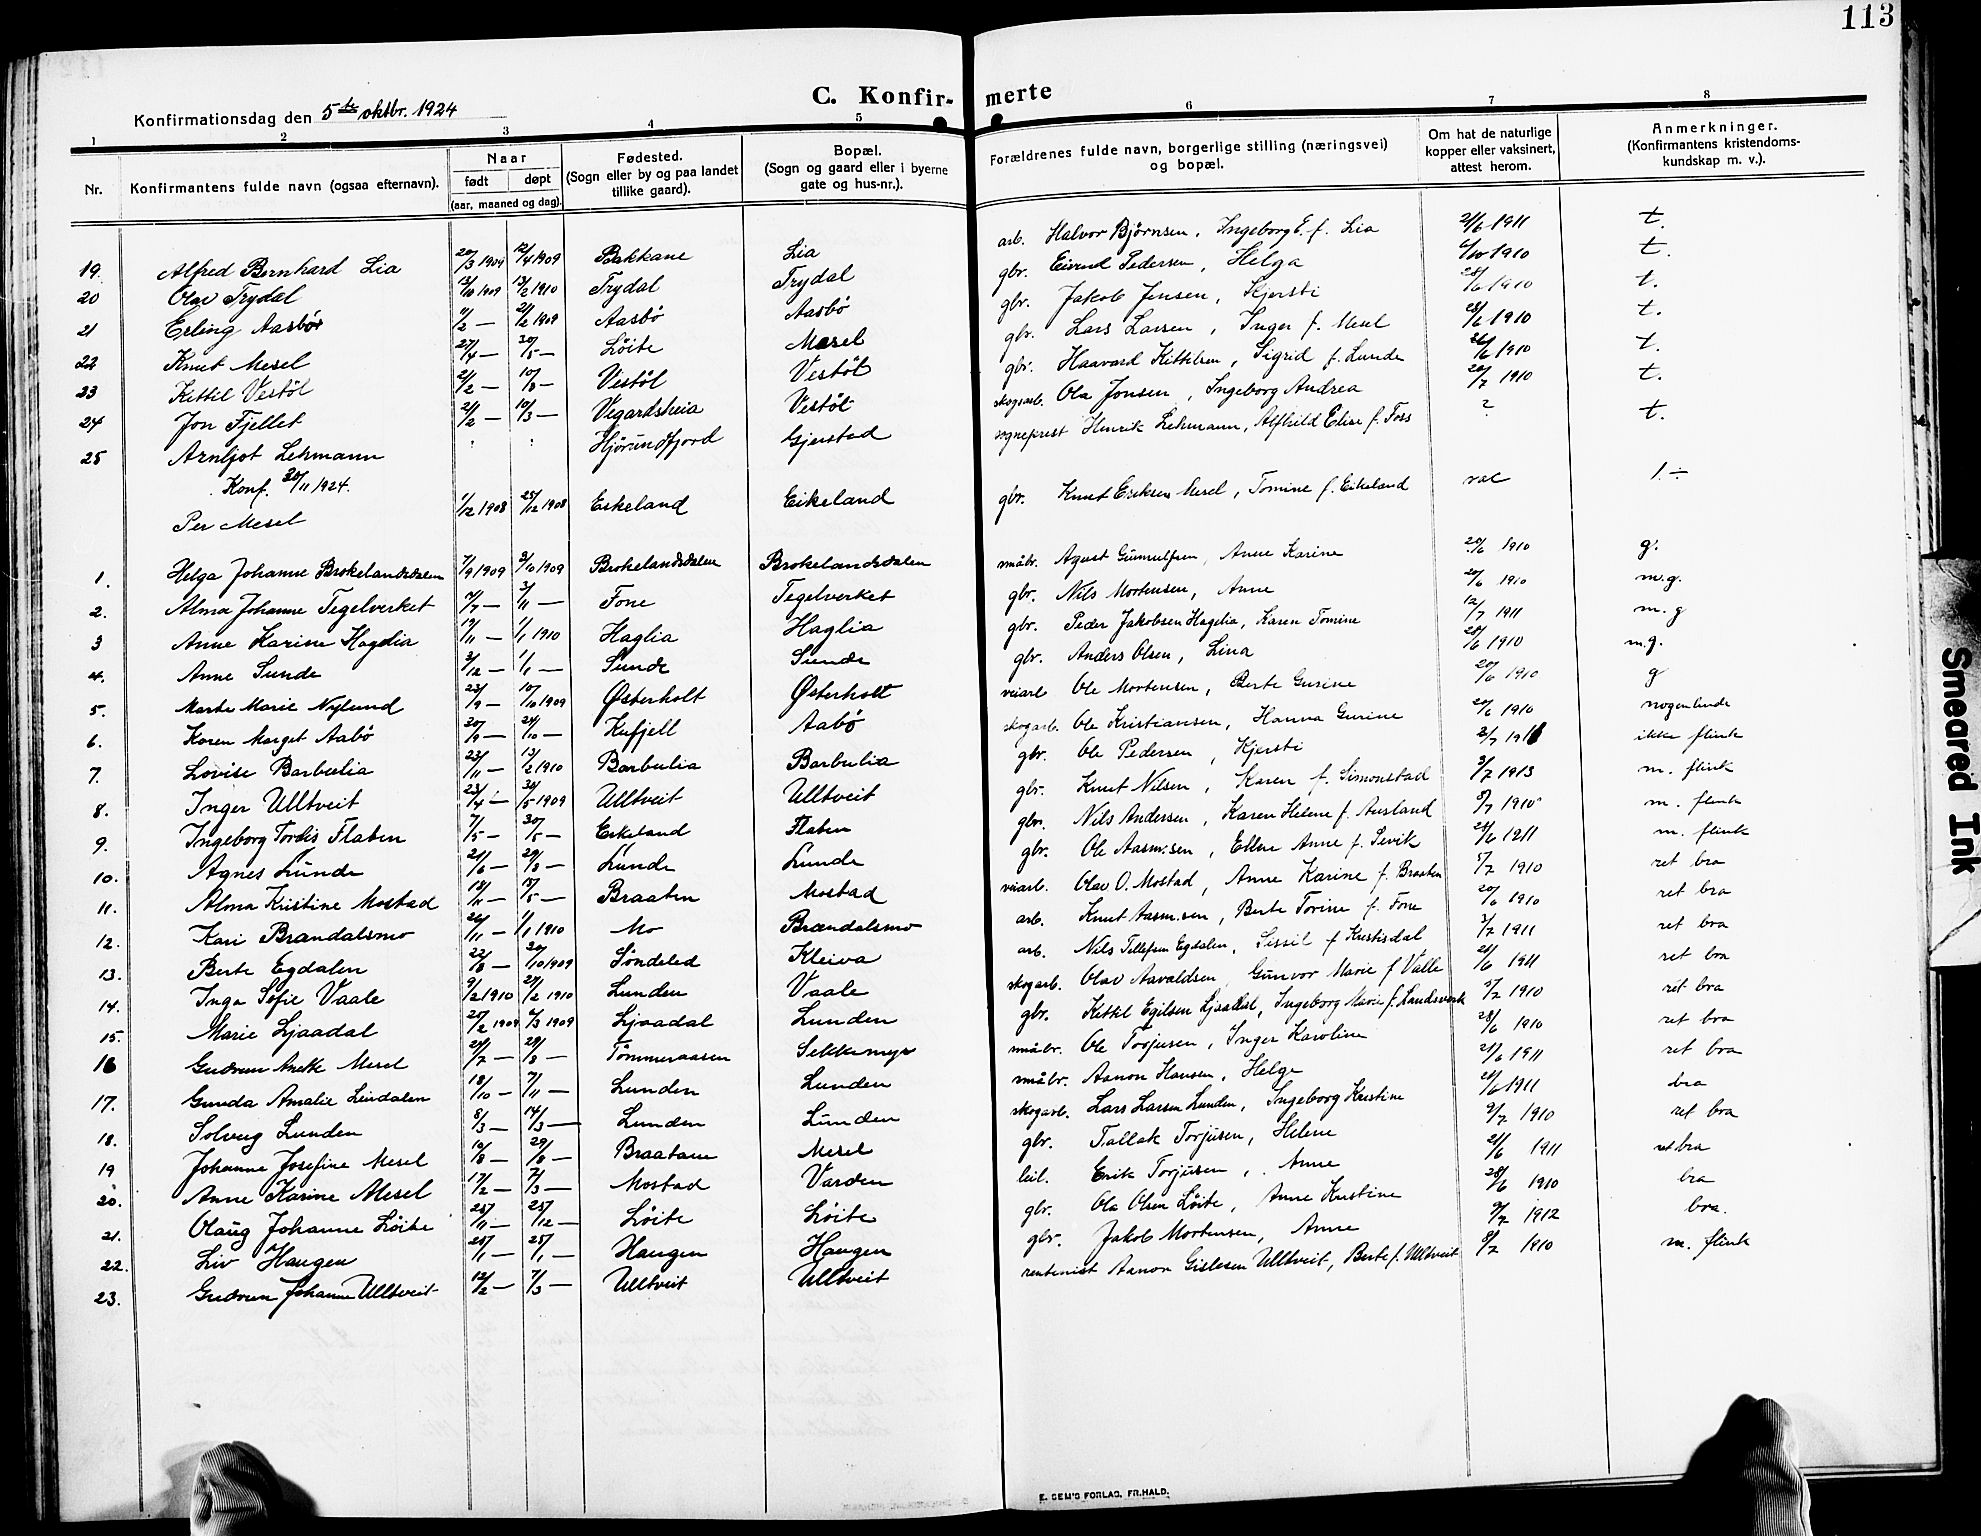 113
C. Konfirmerte
Konfirmationsdag den 5te oktbr. 1924
1 2 3 4 5 6 7 8
Nr. Konfirmantens fulde navn (ogsaa efternavn). Naar født døpt (aar, maaned og dag). Fødested. (Sogn eller by og paa landet tillike gaard). Bopæl. (Sogn og gaard eller i byerne gate og hus-nr.). Forældrenes fulde navn, borgerlige stilling (næringsvei) og bopæl. Om hat de naturlige kopper eller vaksinert, attest herom. Anmerkninger. (Konfirmantens kristendoms-kundskap m. v.).
19. Alfred Bernhard Lia 20/3 1909 12/4 1909 Bakkane Lia arb. Halvor Bjørnsen, Ingeborg E. f. Lia 21/6 1911 t.
20 Olav Trydal 13/10 1909 13/2 1910 Trydal Trydal gbr. Eivind Pedersen, Helga 6/10 1910 t.
21 Erling Aasbø 11/2 — 21/2 1909 Aasbø Aasbø gbr. Jakob Jensen, Kjersti 28/6 1910 t.
22 Knut Mesel 27/4 — 30/5 — Løite Mesel gbr. Lars Larsen, Inger f. Mesel 28/6 1910 t.
23 Kittil Vestøl 21/2 — 10/8 — Vestøl Vestøl gbr. Haavard Kittilsen, Sigrid f. Lunde 26/6 1910 t.
24 Jon Fjellet 21/2 — 10/3 — Vegardsheia Vestøl skogarb. Ola Jonsen, Ingeborg Andrea 20/7 1910 t.
25 Arnljot Lehmann : : Hjørundfjord Gjerstad sogneprest Henrik Lehmann, Alfhild Elise f. Foss ? t.
Konf. 30/11 1924.
Per Mesel 1/12 1908 25/12 1908 Eikeland Eikeland gbr. Knut Eriksen Mesel, Tomine f. Eikeland vac 1.÷
1. Helga Johanne Brokelandsdalen 7/9 1909 3/10 1909 Brokelandsdalen Brokelandsdalen småbr. Agust Gunnulfsen, Anne Karine 20/6 1910 g.
2. Alma Johanne Tegelverket 7/7 — 3/11 — Fone Tegelverket gbr. Nils Mortensen, Anne 20/6 1910 m.g.
3 Anne Karine Hagelia 19/11 — 1/1 1910 Haglia Haglia gbr. Peder Jakobsen Hagelia, Karen Tomine 12/7 1911 m. g
4. Anne Sunde 3/12 — 1/1 — Sunde Sunde gbr. Anders Olsen, Lina 28/6 1910 m.g.
5. Marte Marie Nylund 23/9 — 10/10 1909 Østerholt Østerholt veiarb Ole Mortensen, Berte Gurine 20/6 1910 g
6. Karen Marget Aabø 20/9 — 24/10 — Kufjell Aabø skogarb. Ole Kristiansen, Hanna Gurine 20/6 1910 nogenlunde
7. Lovise Barbulia 23/11 — 13/2 1910 Barbulia Barbulia gbr. Ole Pedersen, Kjersti 2/7 1911 ikke flink
8. Inger Ulltveit 23/4 — 30/5 1909 Ulltveit Ulltveit gbr. Knut Nilsen, Karen f. Simonstad 3/7 1913 m. flink
9. Ingeborg Tordis Flaten 7/5 — 30/5 — Eikeland Flaten gbr. Nils Andersen, Karen Helene f. Ausland 8/7 1910 m. flink
10. Agnes Lunde 21/6 — 29/8 — Lunde Lunde gbr. Ole Aasm.sen, Ellen Anne f. Sevik 28/6 1911 m. flink
11. Alma Kristine Mostad 18/11 — 18/5 — Braaten Mostad veiarb. Olav O. Mostad, Anne Karine f. Braaten 5/7 1910 ret bra
12. Kari Brandalsmo 26/11 — 1/1 1910 Mo Brandalsmo arb. Knut Aasm.sen, Berte Torine f. Fone 20/6 1910 ret bra
13. Berte Egdalen 22/8 — 20/10 1909 Søndeled Kleiva arb. Nils Tellefsen Egdalen, Sissil f Kristisdal 3/7 1911 ret bra
14. Inga Sofie Vaale 9/2 1910 27/2 1910 Lunden Vaale skogarb. Olav Aavaldsen, Gunvor Marie f Valle 21/6 1911 ret bra
15. Marie Ljaadal 25/2 1909 6/3 1909 Ljaadal Lunden gbr. Kittil Egilsen Ljaadal, Ingeborg Marie f. Landsverk 5/7 1910 ret bra
16 Gudrun Anette Mesel 20/7 — 29/8 — Tømmeraasen Sekkemyr småbr. Ole Torjusen, Inger Karoline 28/6 1910 ret bra
17. Gunda Amalie Lindalen 18/10 — 7/11 — Lunden Lunden småbr. Aanon Hansen, Helge 21/6 1911 ret bra
18. Solveig Lunden 8/3 — 14/3 — Lunden Lunden skogarb. Lars Larsen Lunden, Ingeborg Kristine 21/6 1911 bra
19 Johanne Josefine Mesel 10/8 — 29/8 — Braatane Mesel gbr. Tallak Torjusen, Helene 9/7 1910 ret bra
20. Anne Karine Mesel 17/2 — 7/3 — Mostad Varden leil. Erik Torjusen, Anne 21/6 1911 ret bra
21. Olaug Johanne Løite 25/11 — 25/12 — Løite Løite gbr. Ola Olsen Løite, Anne Kristine 28/6 1910 bra
22. Liv Haugen 20/1 — 25/1 — Haugen Haugen gbr. Jakob Mortensen, Anne 9/7 1912 bra.
23. Gudrun Johanne Ulltveit 12/2 — 7/3 — Ulltveit Ulltveit rentenist Aanon Gislesen Ulltveit, Berte f. Ulltveit 8/7 1910 m. flink
E. SEM'S FORLAG, FR.HALD.
Smeared Ink